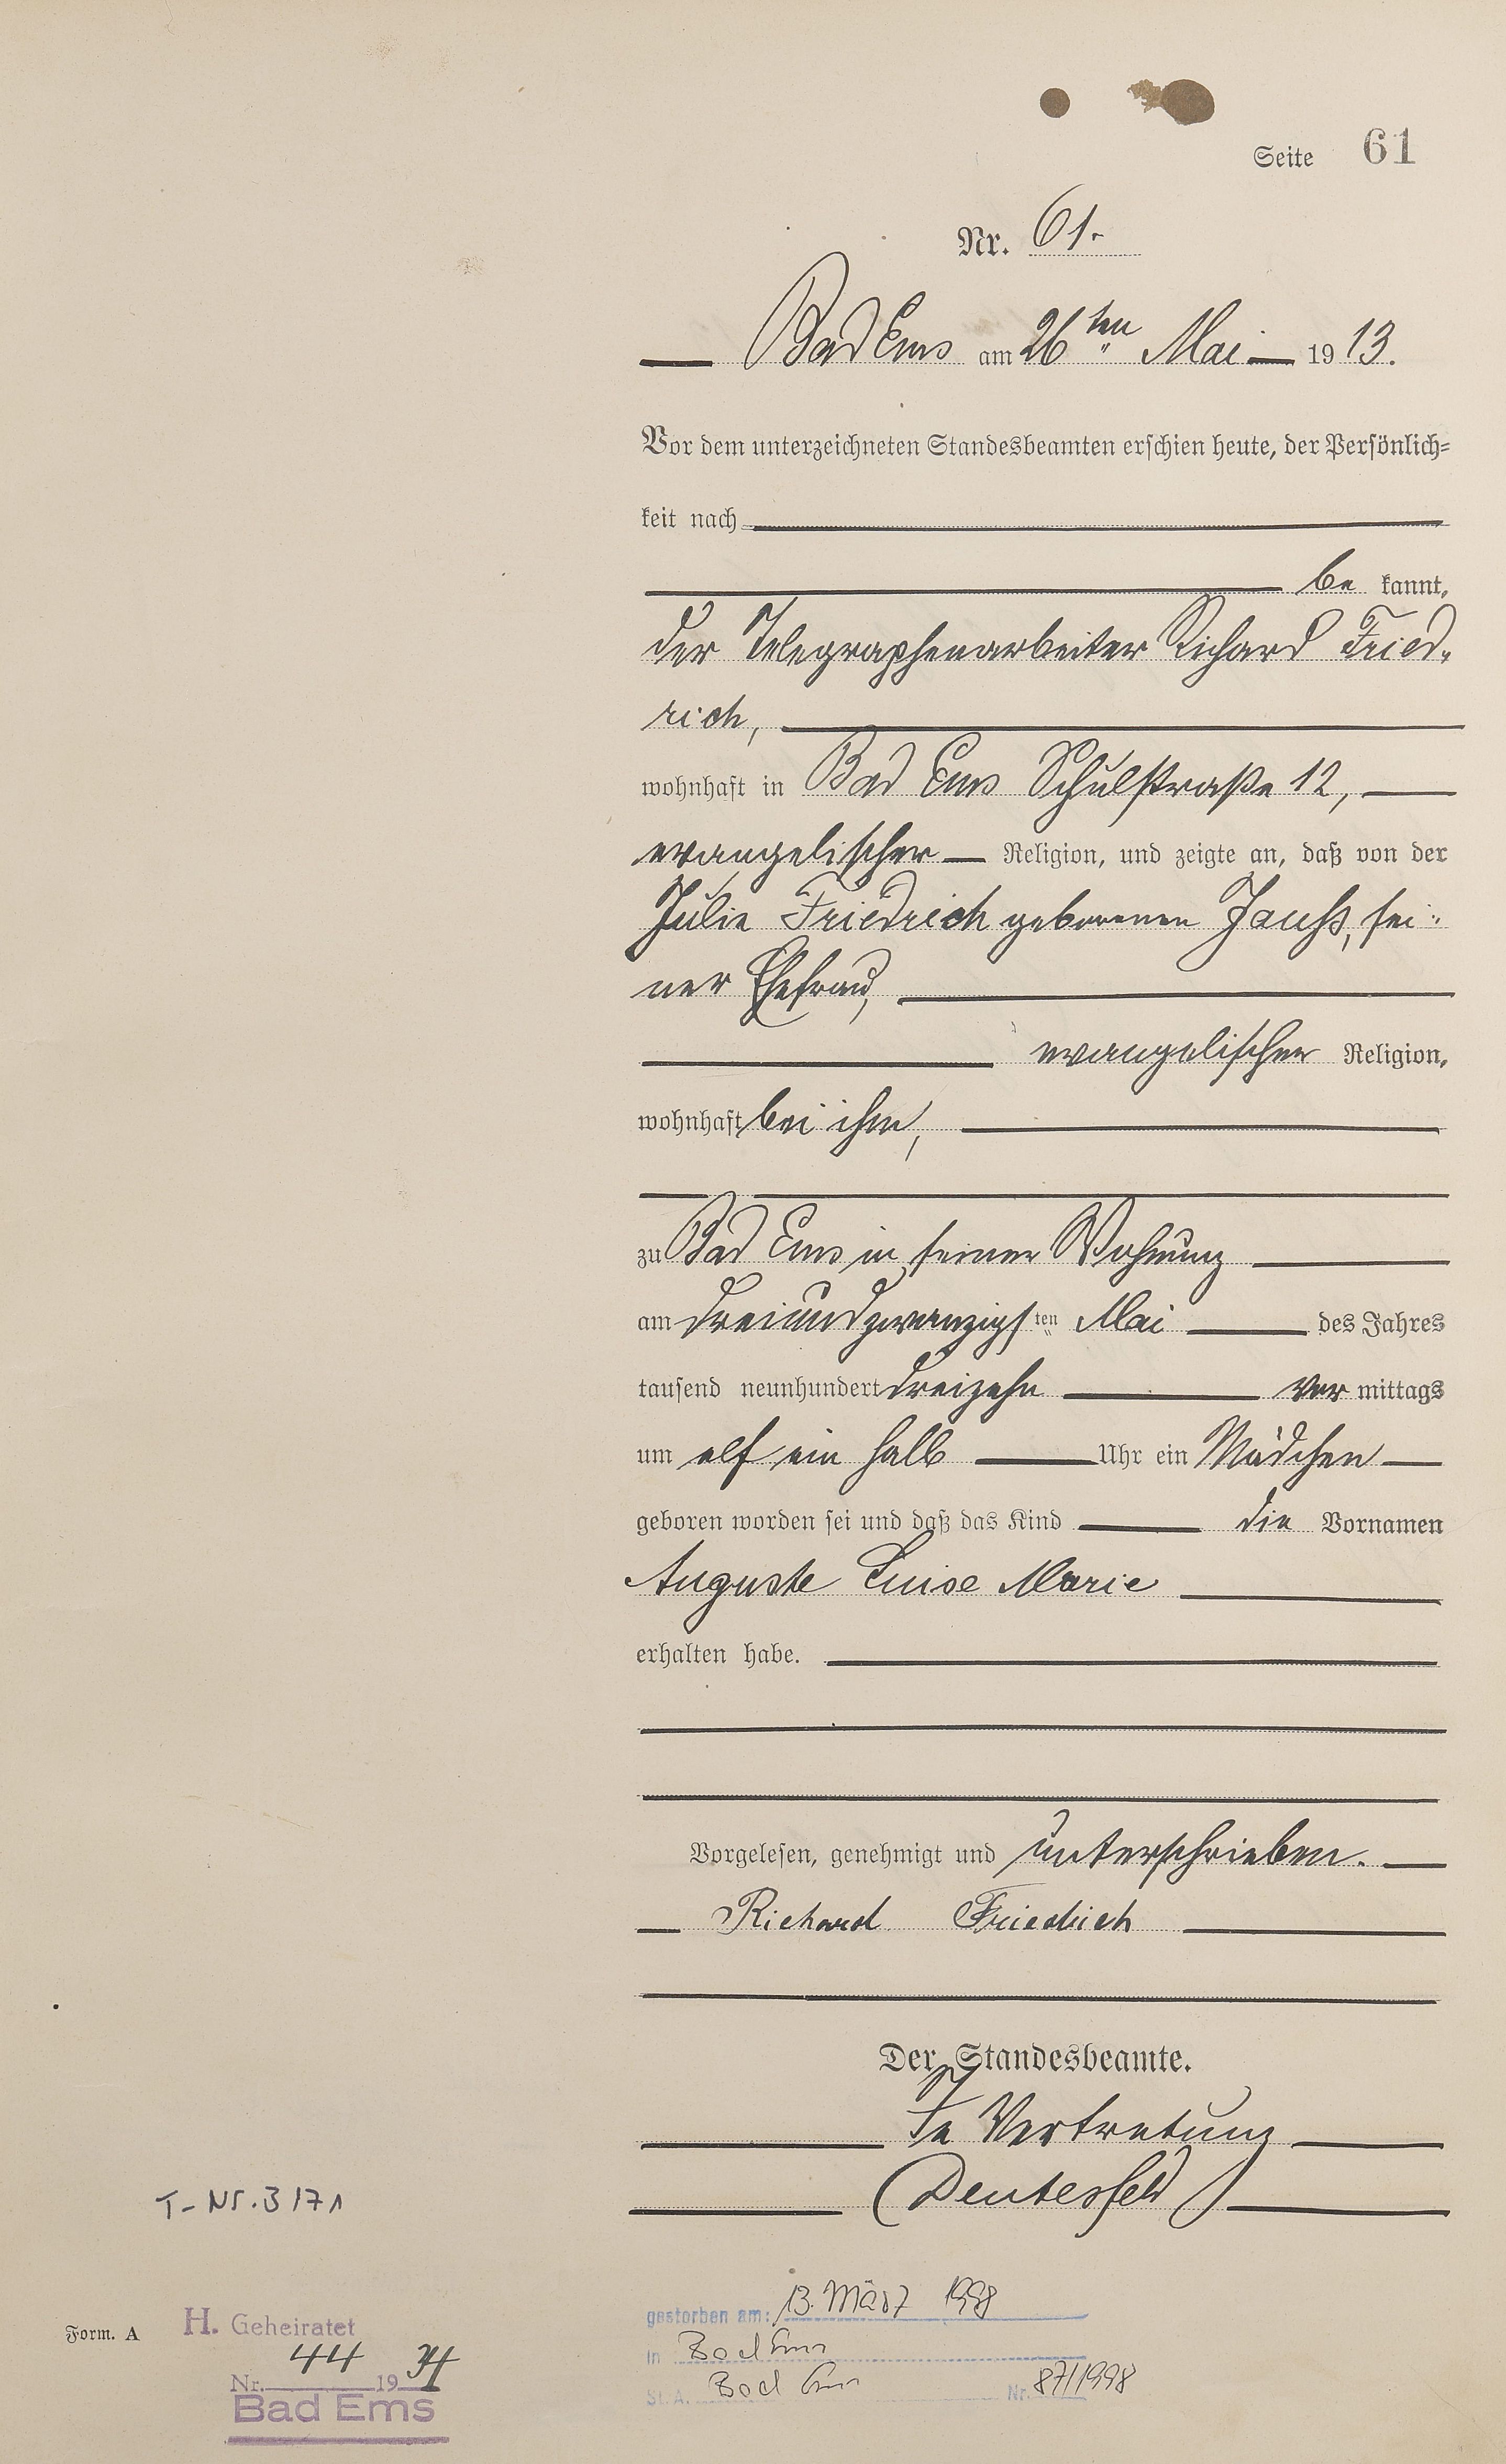 Seite 61
Nr. 61.
Bad Ems am 26ten Mai 1913.
Vor dem unterzeichneten Standesbeamten erschien heute, der Persönlich=
keit nach
be kannt,
der Telegraphenarbeiter Richard Fried-
rich,
wohnhaft in Bad Ems Schulstraße 12,
evangelischer Religion, und zeigte an, daß von der
Julie Friedrich geborenen Jauß, sei-
ner Ehefrau,
evangelischer Religion,
wohnhaft bei ihm,
zu Bad Ems in seiner Wohnung
am dreiundzwanzigsten Mai des Jahres
tausend neunhundert dreizehn vor mittags
um elf ein halb Uhr ein Mädchen
geboren worden sei und daß das Kind die Vornamen
Auguste Luise Marie
erhalten habe.
Vorgelesen, genehmigt und unterschrieben.
Richard Friedrich
Der Standesbeamte.
In Vertretung
(Deutesfeld)
T-Nr. 3171
Form. A
H. Geheiratet
Nr. 44 1934
Bad Ems
gestorben am: 13. März 1998
in Bad Ems
St. A. Bad Ems Nr. 87/1998